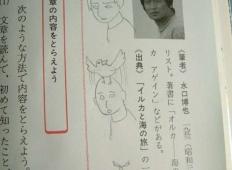 《筆者》水口博也
リスト。著書に「オルカ
カ アゲイン」などがある。
《出典》「イルカと海の旅」の
章の内容をとらえよう
次のような方法で内容をとらえよう。
(1) 文章を読んで、初めて知ったこと